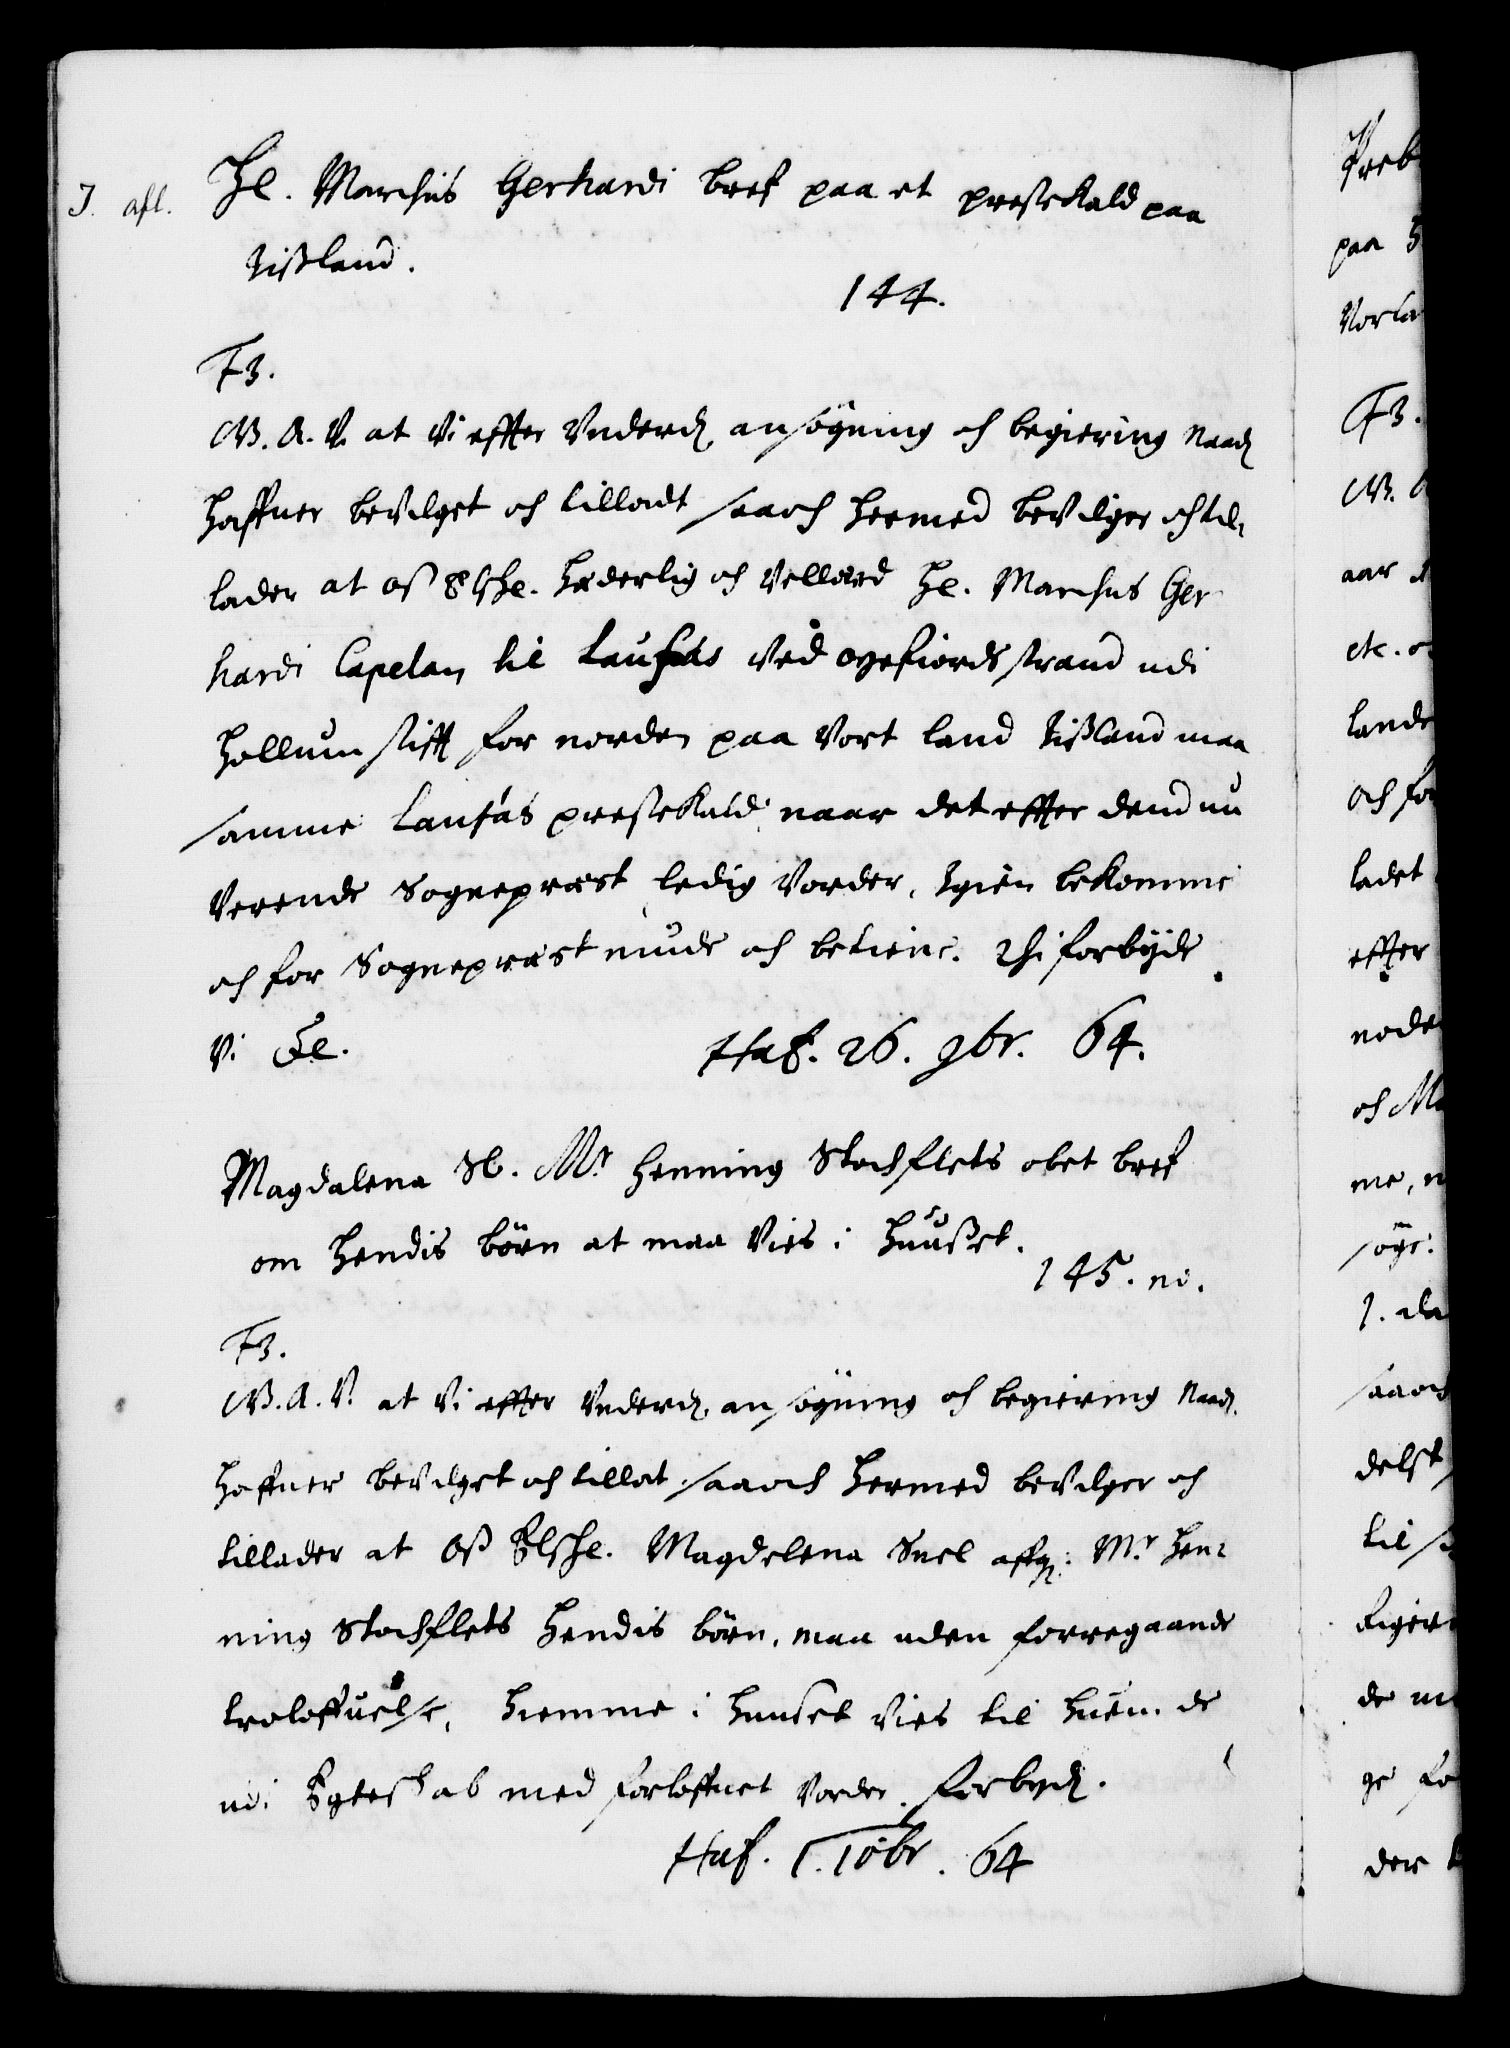 J. afl.
Hl. Marchus Gerhardi bref paa et prestekald paa
Jißland.
144.
F3.
G. A. V. at Vi effter Vnderd. ansögning och begiering Naad.
haffuer bevilget och tilladt, saaoch hermed bevilger och til-
lader at oß Elschl. Hæderlig och Vellærd Hl. Marchus Ger-
hardi Capelan til Laufas Ved ogefiords strand udi
Hollum stifft for norden paa Vort land Jißland maa
samme Laufás prestekald, naar det effter dend nu
Verende Sognepræst ledig Vorder, Igien bekomme
och for Sognepræst niude och betiene. Thi forbyde
Vi Etc.
Haf. 26. 9br. 64.
Magdalena Sl. Mr. Henning Stochflets obet bref
om hendis börn at maa Vies i huuset.
145. no.
F3.
G. A. V. at Vi effter Vnderd. ansögning och begiering Naad.
haffuer bevilget och tillat, saaoch hermed bevilger och
tillader at Oß Elschl. Magdelena Snel affg: Mr. Hen-
ning Stochflets hendis börn, maa uden forregaaende
troloffuelse, hiemme i huuset Vies til huem de
udi Egteschab med forloffuet Vorder. forbyd.
Haf. 1. 10br. 64
Preb
paa
Vorla
F3.
G. A
aar
etc.
lande
Och for
ladet
effter
node
och Ma
me,
söge.
1. da
saaoch
delst
til
Riger
de
ge fo
der